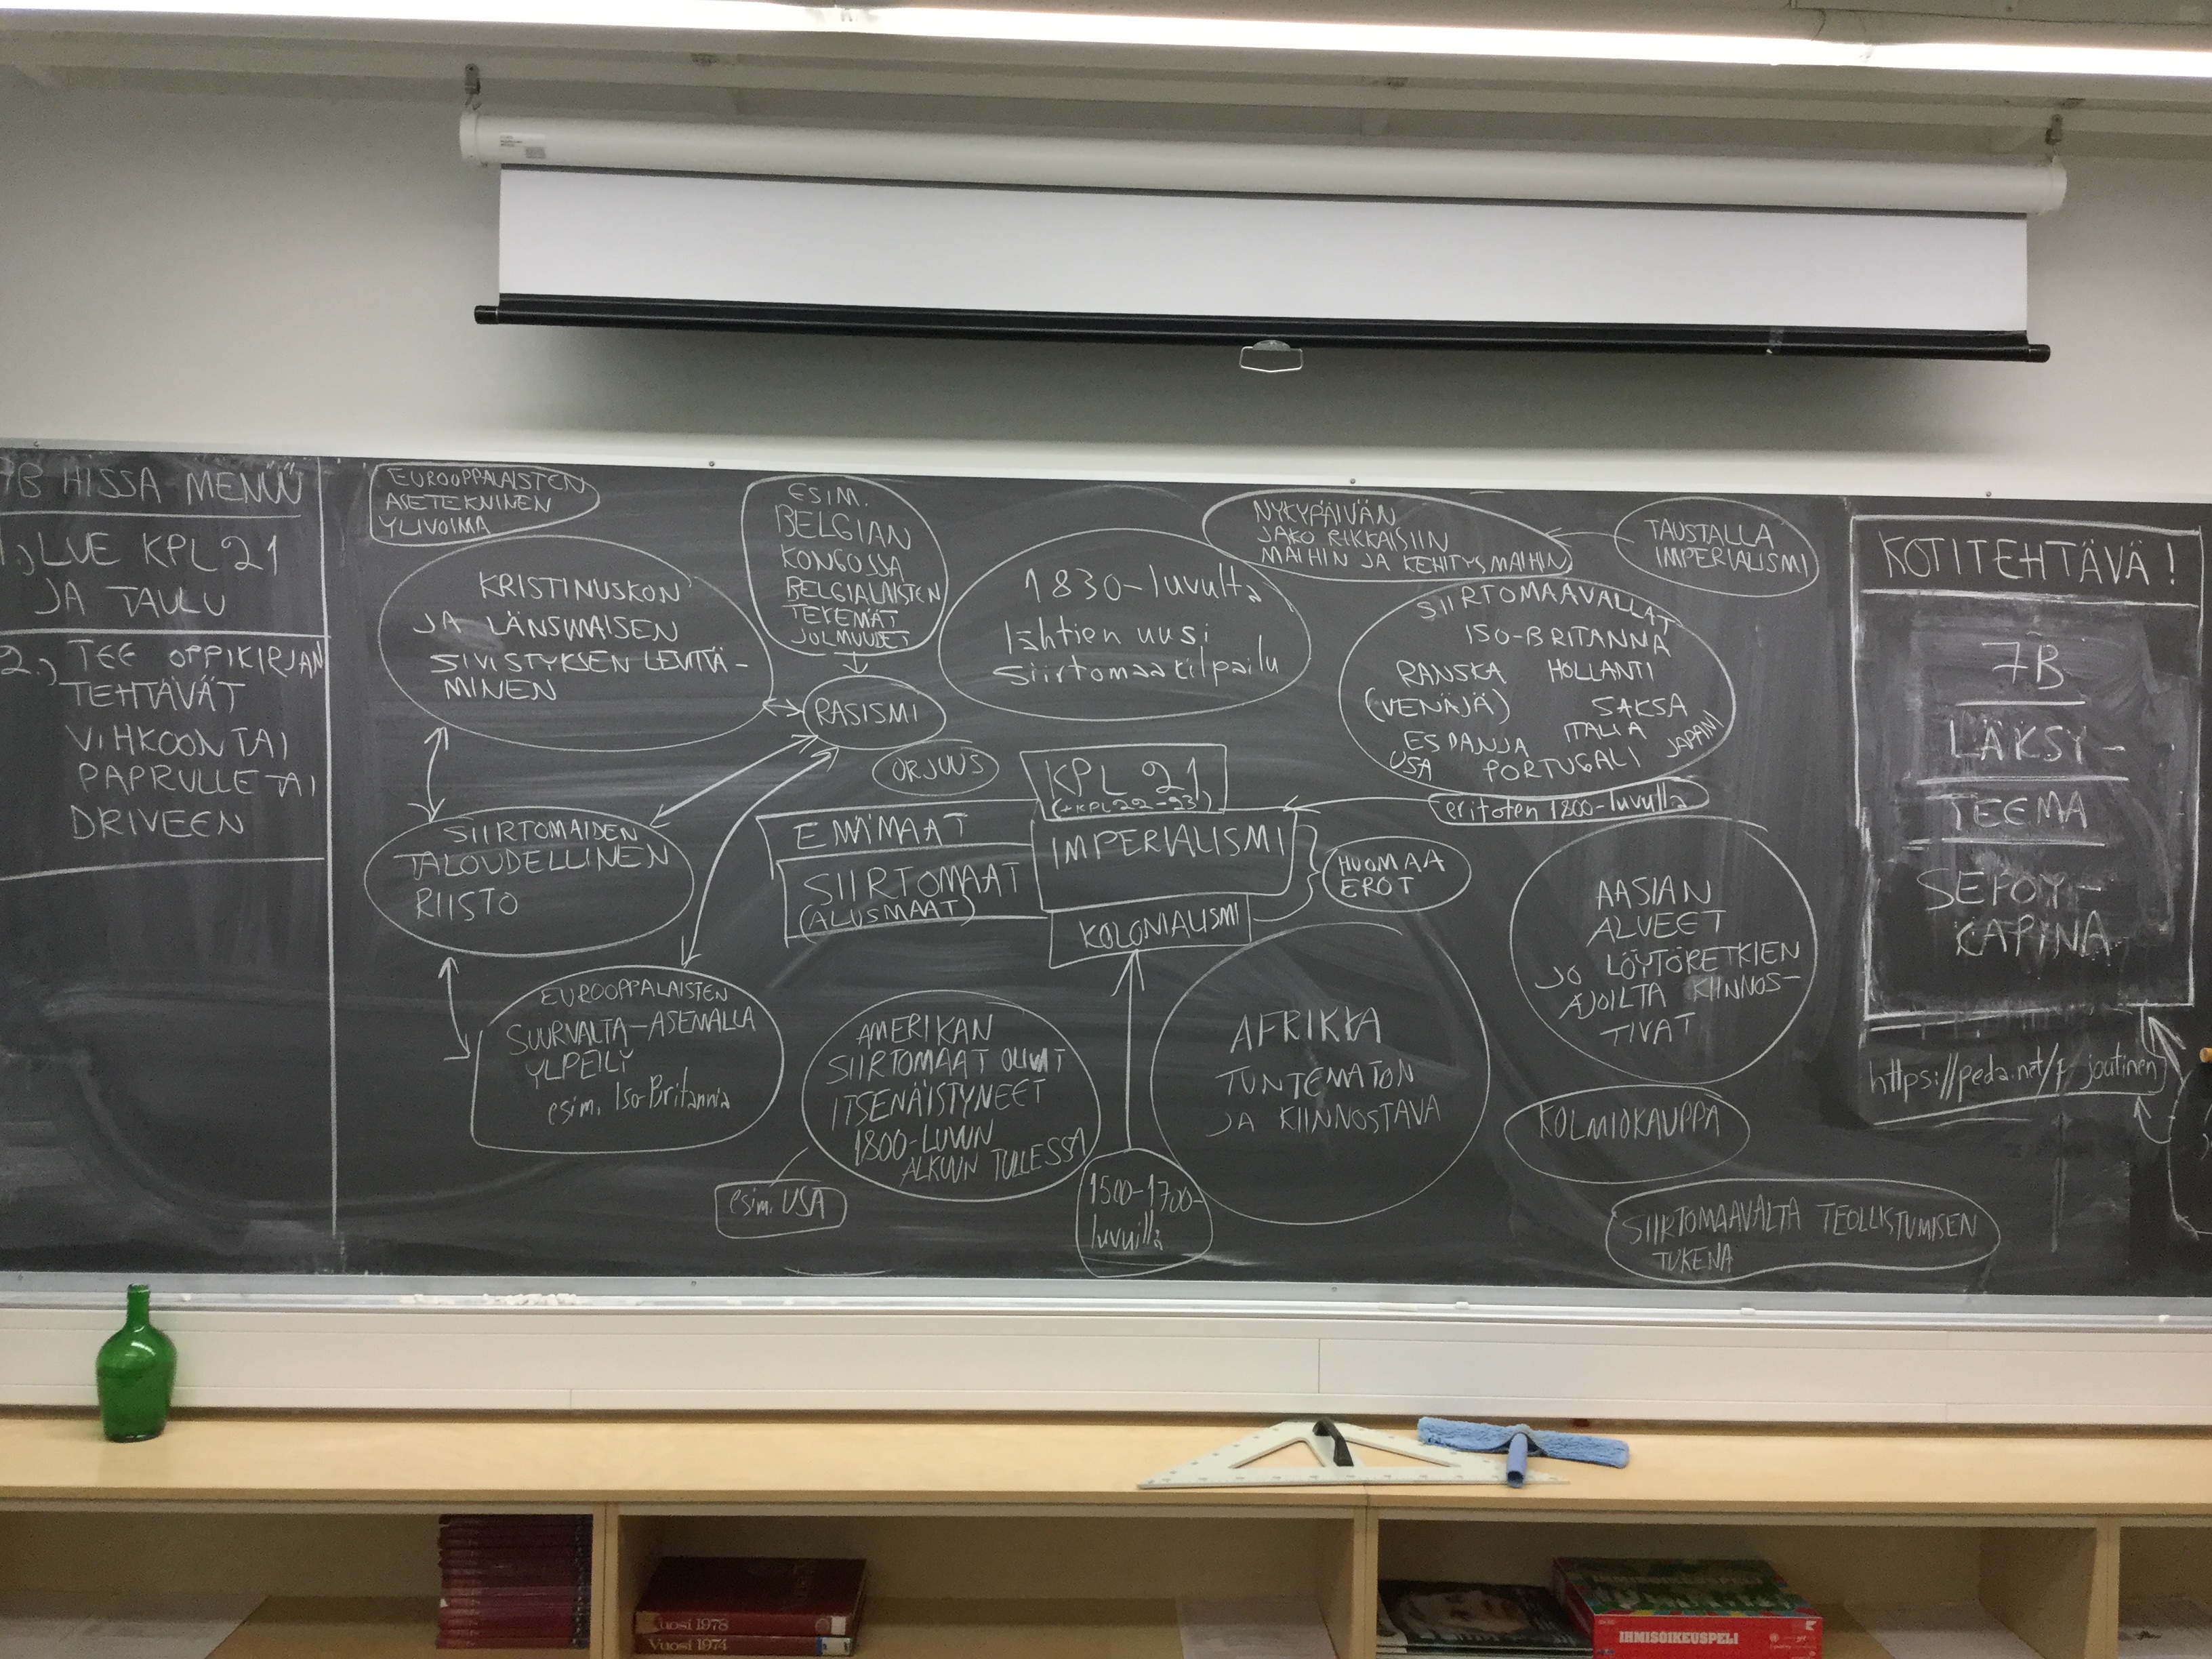 7B HISSA MENÜÜ
1.) LUE KPL 21
JA TAULU
2.) TEE OPPIKIRJAN
TEHTÄVÄT
VIHKOON TAI
PAPRULLE TAI
DRIVEEN
EUROOPPALAISTEN
ASETEKNINEN
YLIVOIMA
KRISTINUSKON
JA LÄNSIMAISEN
SIVISTYKSEN LEVITTÄ-
MINEN
SIIRTOMAIDEN
TALOUDELLINEN
RIISTO
EUROOPPALAISTEN
SUURVALTA-ASEMALLA
YLPEILY
esim. Iso-Britannia
ESIM.
BELGIAN
KONGOSSA
BELGIALAISTEN
TEKEMÄT
JULMUUDET
RASISMI
ORJUUS
1830-luvulta
lähtien uusi
siirtomaakilpailu
KPL 21
(+KPL 22-23)
EMÄMAAT
SIIRTOMAAT
(ALUSMAAT)
IMPERIALISMI
KOLONIALISMI
HUOMAA
EROT
AMERIKAN
SIIRTOMAAT OLIVAT
ITSENÄISTYNEET
1800-LUVUN
ALKUUN TULLESSA
esim. USA
1500-1700-
luvuilla
AFRIKKA
TUNTEMATON
JA KIINNOSTAVA
NYKYPÄIVÄN
JAKO RIKKAISIIN
MAIHIN JA KEHITYSMAIHIN
TAUSTALLA
IMPERIALISMI
SIIRTOMAAVALLAT
ISO-BRITANNIA
RANSKA HOLLANTI
(VENÄJÄ) SAKSA
ESPANJA ITALIA JAPANI
USA PORTUGALI
eritoten 1800-luvulla
AASIAN
ALUEET
JO LÖYTÖRETKIEN
AJOILTA KIINNOS-
TIVAT
KOLMIOKAUPPA
SIIRTOMAAVALTA TEOLLISTUMISEN
TUKENA
KOTITEHTÄVÄ!
7B
LÄKSY-
TEEMA
SEPOY-
KAPINA
https://peda.net/p/joutinen
Vuosi 1978
Vuosi 1974
IHMISOIKEUSPELI
IHMISOIKEUSPELI